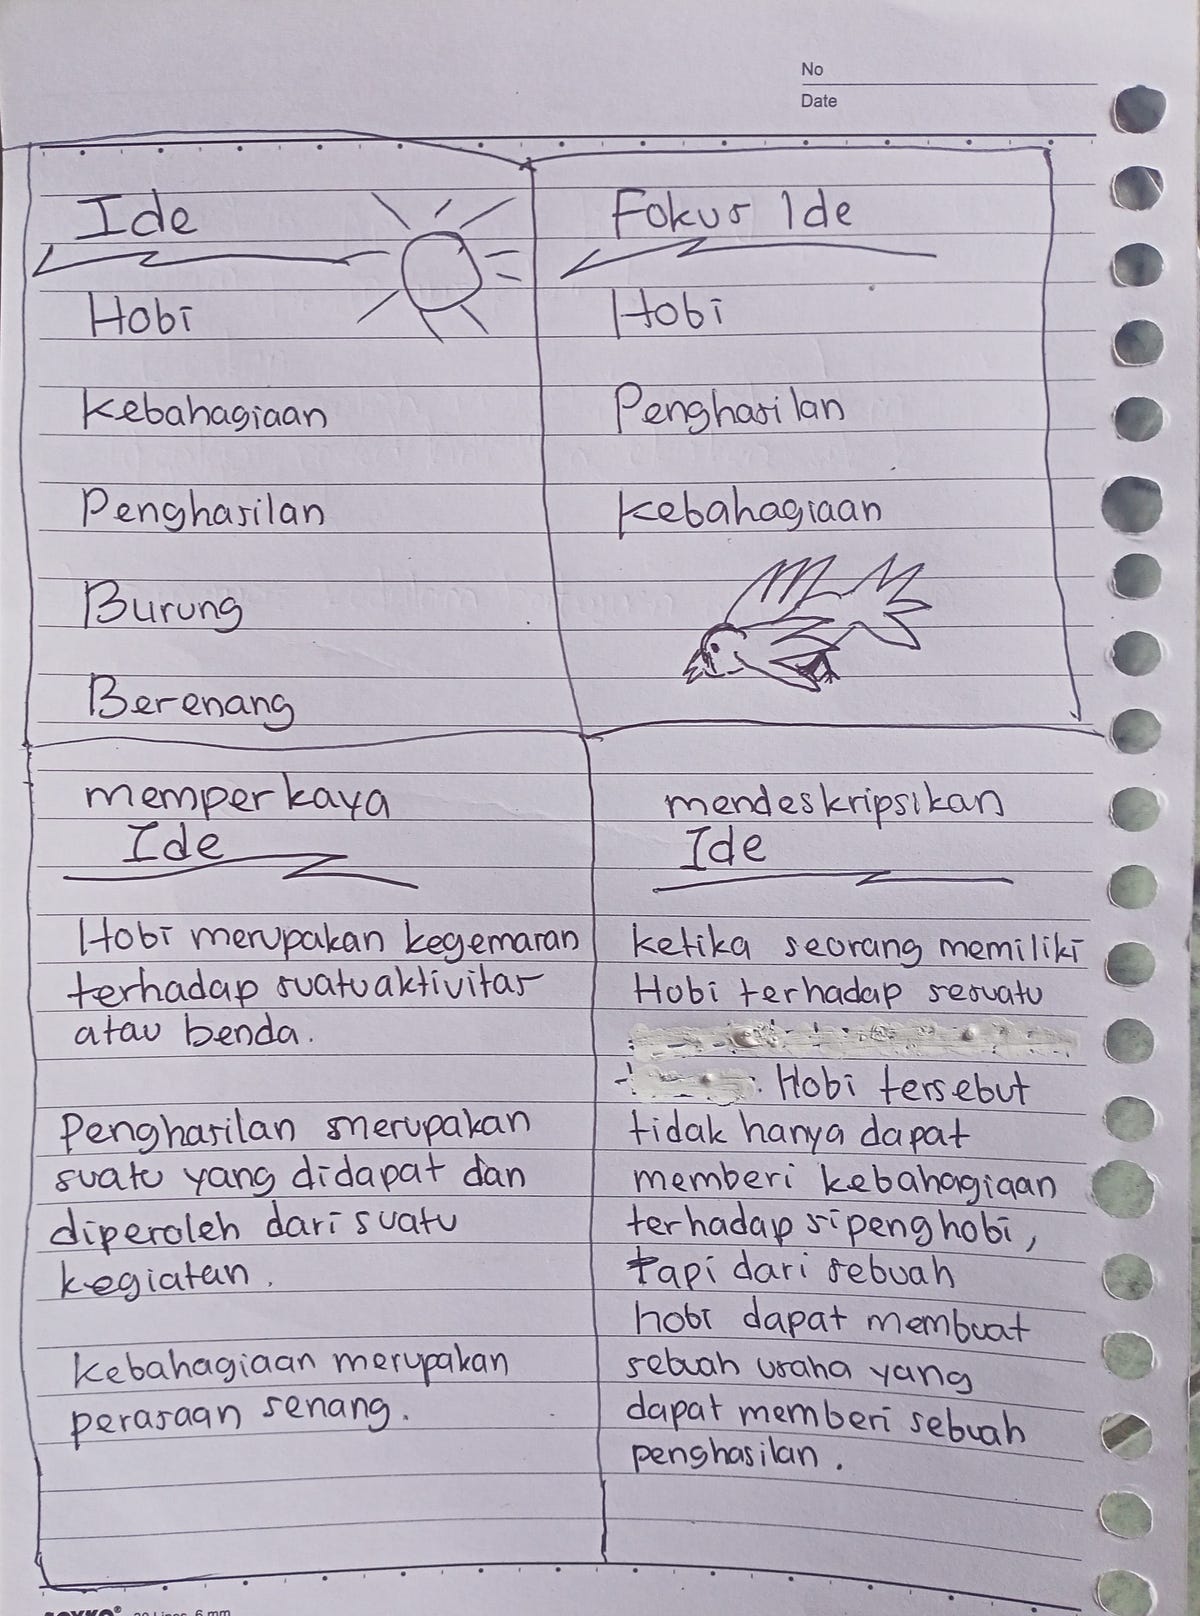 No
Date
Ide
Hobi
Kebahagiaan
Penghasilan
Burung
Berenang
Fokus Ide
Hobi
Penghasilan
Kebahagiaan
memperkaya
Ide
Hobi merupakan kegemaran
terhadap suatu aktivitas
atau benda.
Penghasilan merupakan
suatu yang didapat dan
diperoleh dari suatu
kegiatan.
Kebahagiaan merupakan
perasaan senang.
mendeskripsikan
Ide
ketika seorang memiliki
Hobi terhadap sesuatu
. Hobi tersebut
tidak hanya dapat
memberi kebahagiaan
terhadap si penghobi,
tapi dari sebuah
hobi dapat membuat
sebuah usaha yang
dapat memberi sebuah
penghasilan.
6 mm